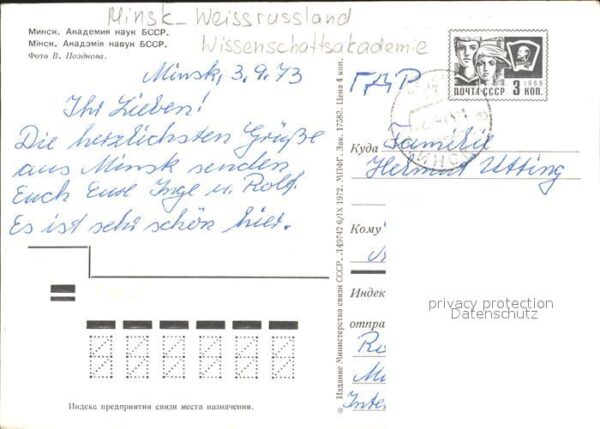 Minsk - Weissrussland
Wissenschaftsakademie
Минск. Академия наук БССР.
Мінск. Акадэмія навук БССР.
Фото В. Позднова.
Minsk, 3.9.73
Ihr Lieben!
Die herzlichsten Grüße
aus Minsk senden
Euch Eure Inge u. Rolf.
Es ist sehr schön hier.
Индекс предприятия связи места назначения.
* Издание Министерства связи СССР. 149742 6/IX 1972. МПФГ. Зак. 17582. Цена 4 коп.
ПОЧТА СССР 3 КОП.
1966
МИНСК
ГДР
Куда Familie
Helmut Utting
Кому
Индек
отправ
Ro
Mi
Inter
privacy protection
Datenschutz